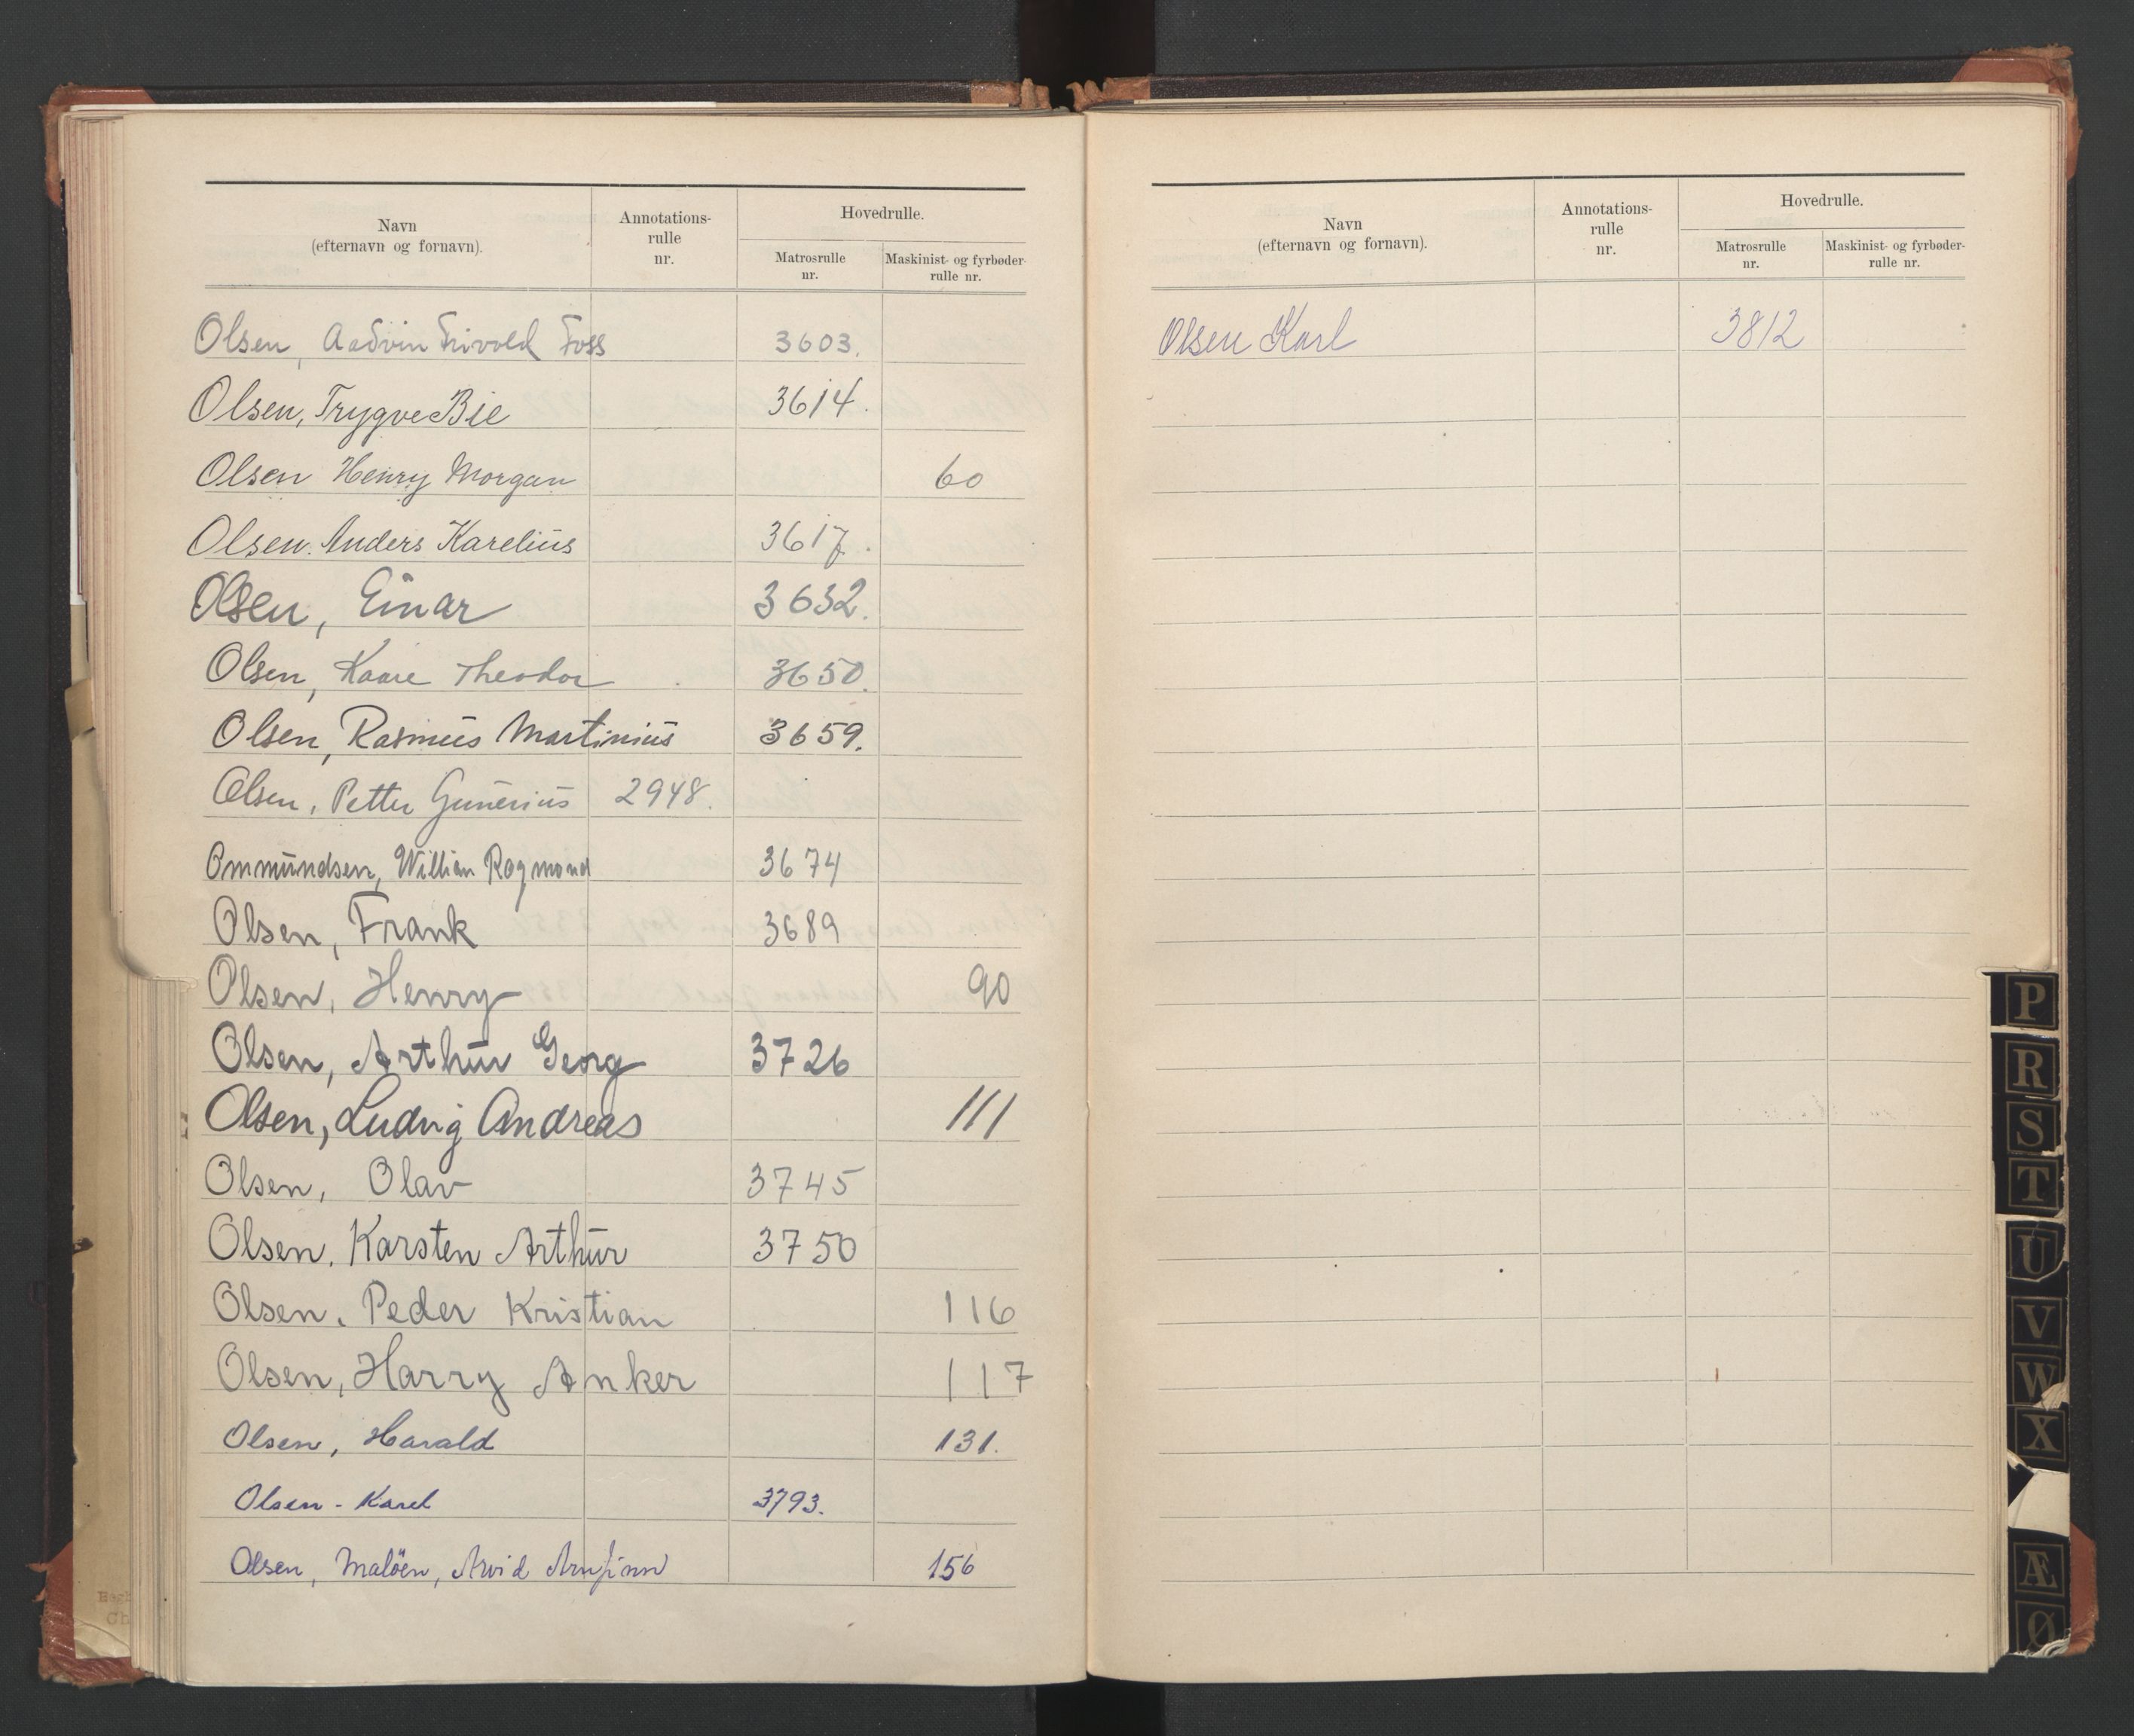 Navn
(efternavn og fornavn).
Annotations-
rulle
nr.
Hovedrulle.
Matrosrulle
nr.
Maskinist- og fyrbøder-
rulle nr.
Olsen, Aadvin Trivold Foss 3603.
Olsen, Trygve Bie 3614.
Olsen Henry Morgan 60
Olsen. Anders Karelius 3617.
Olsen, Einar 3632.
Olsen, Kaare Theodor 3650.
Olsen, Rasmus Martinius 3659.
Olsen, Petter Gunerius 2948.
Ommundsen, Willian Ragmond 3674
Olsen, Frank 3689
Olsen, Henry 90
Olsen, Arthur Georg 3726
Olsen, Ludvig Andreas 111
Olsen, Olav 3745
Olsen, Karsten Arthur 3750
Olsen, Peder Kristian 116
Olsen, Harry Anker 117
Olsen, Harald 131.
Olsen - Karel 3793.
Olsen, Maløen, Arvid Arnfinn 156
Navn
(efternavn og fornavn).
Annotations-
rulle
nr.
Hovedrulle.
Matrosrulle
nr.
Maskinist- og fyrbøder-
rulle nr.
Olsen Karl 3812
P
R
S
T
U
V
W
X
Æ
Ø